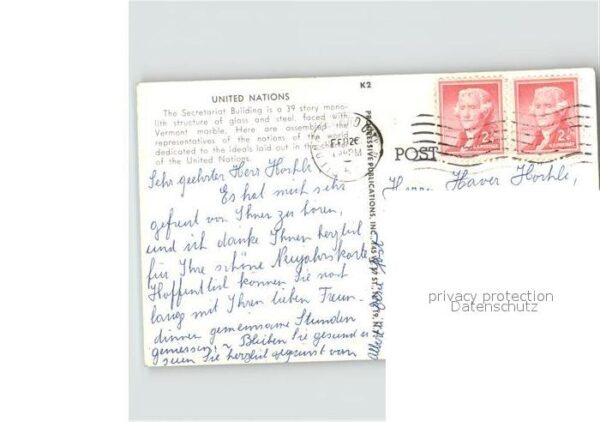 K2
UNITED NATIONS
The Secretariat Building is a 39 story mono-
lith structure of glass and steel, faced with
Vermont marble. Here are assembled the
representatives of the nations of the world
dedicated to the ideals laid out in the
of the United Nations.
Sehr geehrter Herr Horhli
Es hat mich sehr
gefreut von Ihnen zu hören,
und ich danke Ihnen herzlich
für Ihre schöne Neujahrskarte
Hoffentlich können Sie noch
lang mit Ihren lieben Freun-
dinnen gemeinsame Stunden
geniessen! Bleiben Sie gesund
seien Sie herzlich gegrüsst von
PROGRESSIVE PUBLICATIONS, INC.
POST
2¢
2¢
Haver Horhli,
privacy protection
Datenschutz